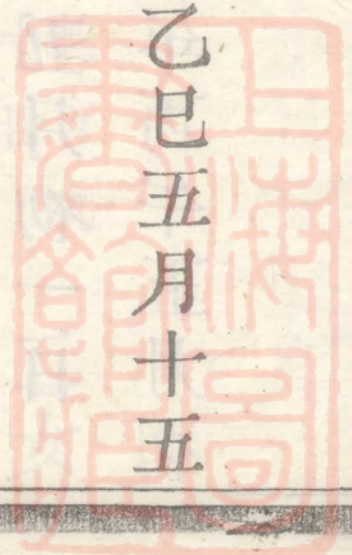 乙巳五月十五